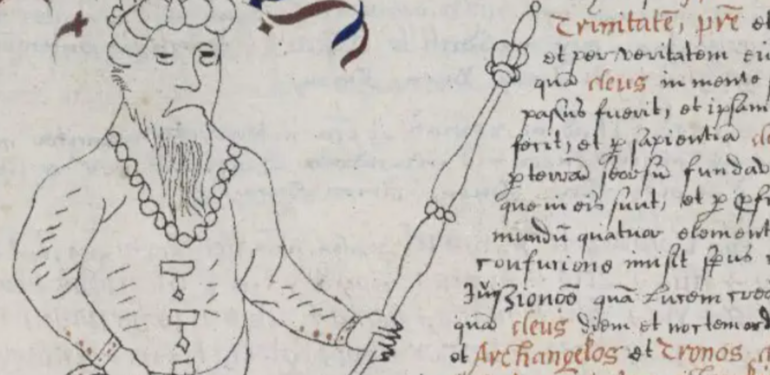 Trinitatē, prē et
et per veritatem
qua deus in monte
passus fuerit, et ipsam
ferit, et p sapientiā
p terrā seorsū fundav
que in eis sunt, et p
mundū quatuor element
confusione misit spūs
quā lucem
qua deus diem et noctem
et Archangelos et Tronos